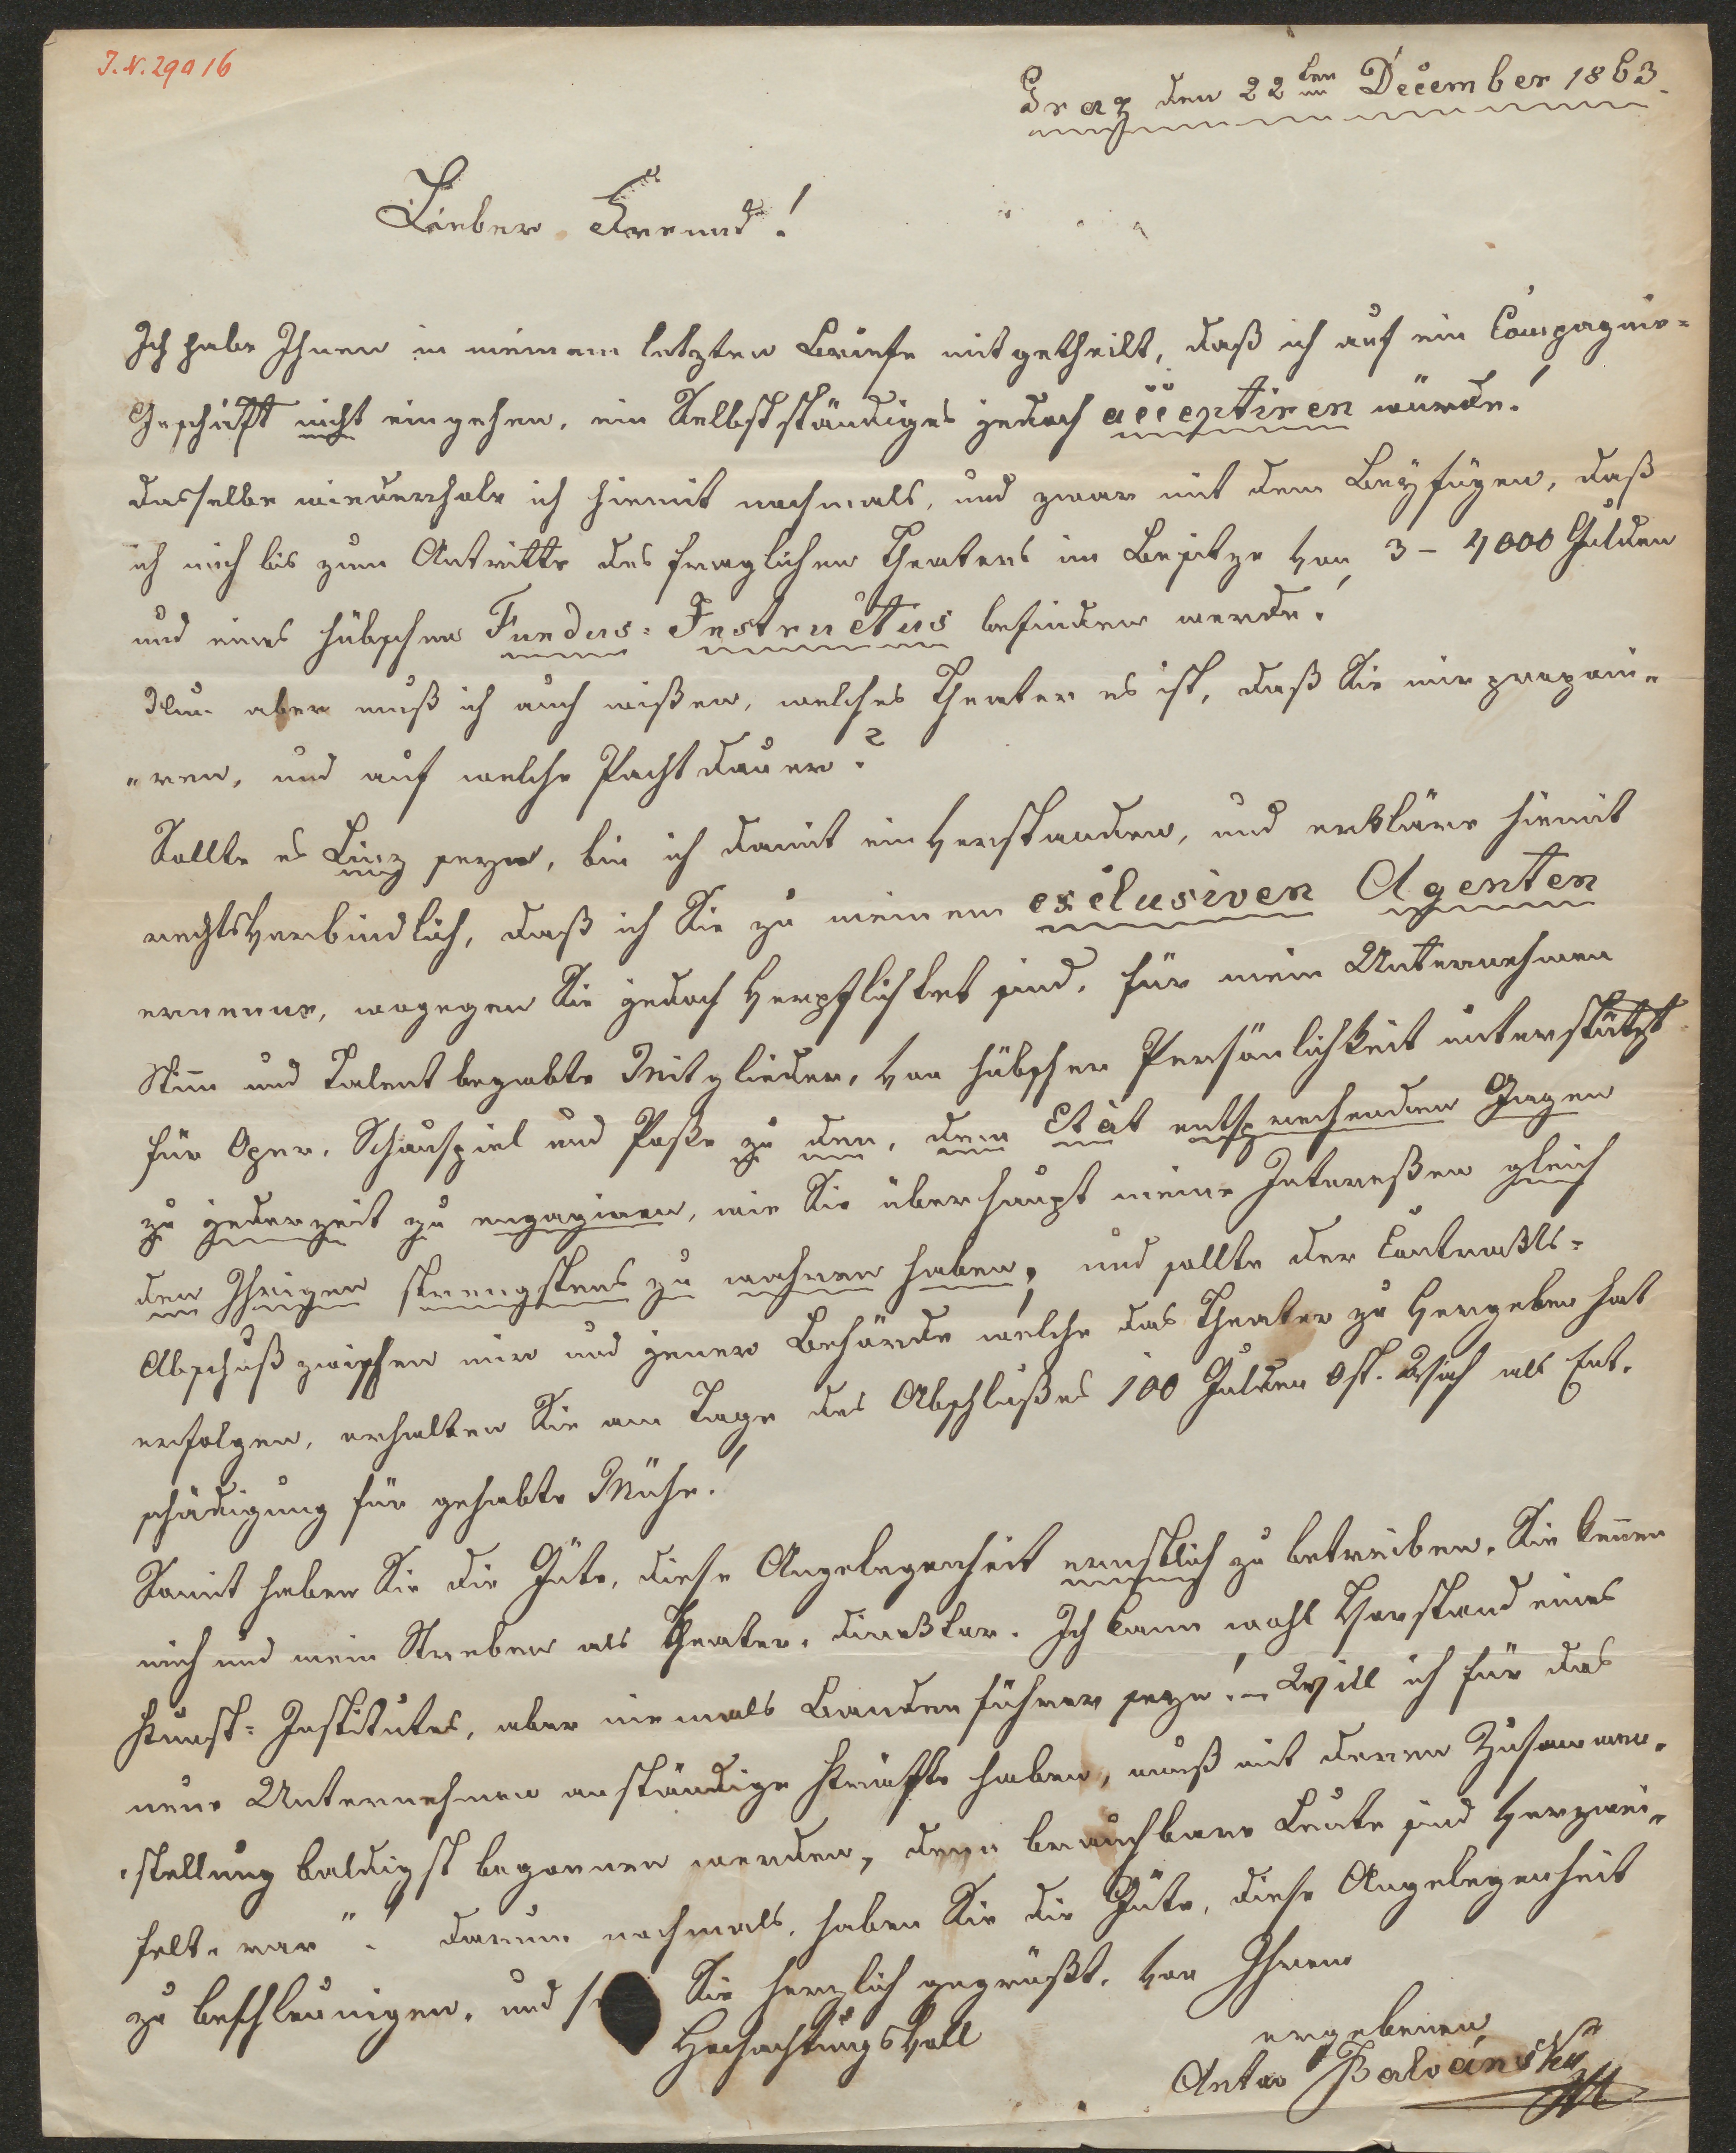 I.N. 29916
Graz den 22ten December 1863.
Lieber Freund!
Ich habe Ihnen in meinem letzten Briefe mitgetheilt, daß ich auf ein Compagnie=
Geschäft nicht eingehen, ein Selbstständiges jedoch acceptiren würde!
dasselbe wiederhole ich hiemit nochmals, und zwar mit dem Beyfügen, daß
ich mich bis zum Antritte des fraglichen Theaters im Besitze von 3 – 4000 Gulden
und eines hübschen Fundus=Instructus befinden werde!
Nun aber muß ich auch wißen, welches Theater es ist, daß Sie mir proponi„
„ren, und auf welche Pachtdauer?
Sollte es Linz seyn, bin ich damit einverstanden, und erkläre hiemit
rechtsverbindlich, daß ich Sie zu meinem exclusiven Agenten
ernenne, wogegen Sie jedoch verpflichtet sind, für mein Unternehmen
Stim̄ und Talent begabte Mitglieder, von hübscher Persönlichkeit unterstützt
für Oper, Schauspiel und Poße zu den, dem Etat entsprechenden Gagen
zu jederzeit zu engagiren, wie Sie überhaupt meine Intereßen gleich
den Ihrigen strengstens zu wahren haben; und sollte der Contrakts=
Abschuß zwischen mir und jener Behörde welche das Theater zu vergeben hat
erfolgen, erhalten Sie am Tage des Abschlußes 100 Gulden Öst. Wäh als Ent„
schädigung für gehabte Mühe!
Somit haben Sie die Güte, diese Angelegenheit ernstlich zu betreiben. Sie ken̄en
mich und mein Streben als Theater„direktor. Ich kann wohl Vorstand eines
Kunst=Institutes, aber niemals Bandenführer seyn! – Will ich für das
neue Unternehmen anständige Kräfte haben, muß mit deren Zusammen„
„stellung baldigst begonnen werden, denn brauchbare Leute sind verzwei„
felt„ rar"! darum nochmals, haben Sie die Güte, diese Angelegenheit
zu beschleunigen, und Sie herzlich gegrüßt, von Ihrem
Hochachtungsvoll
ergebenen
Anton Balvánsky